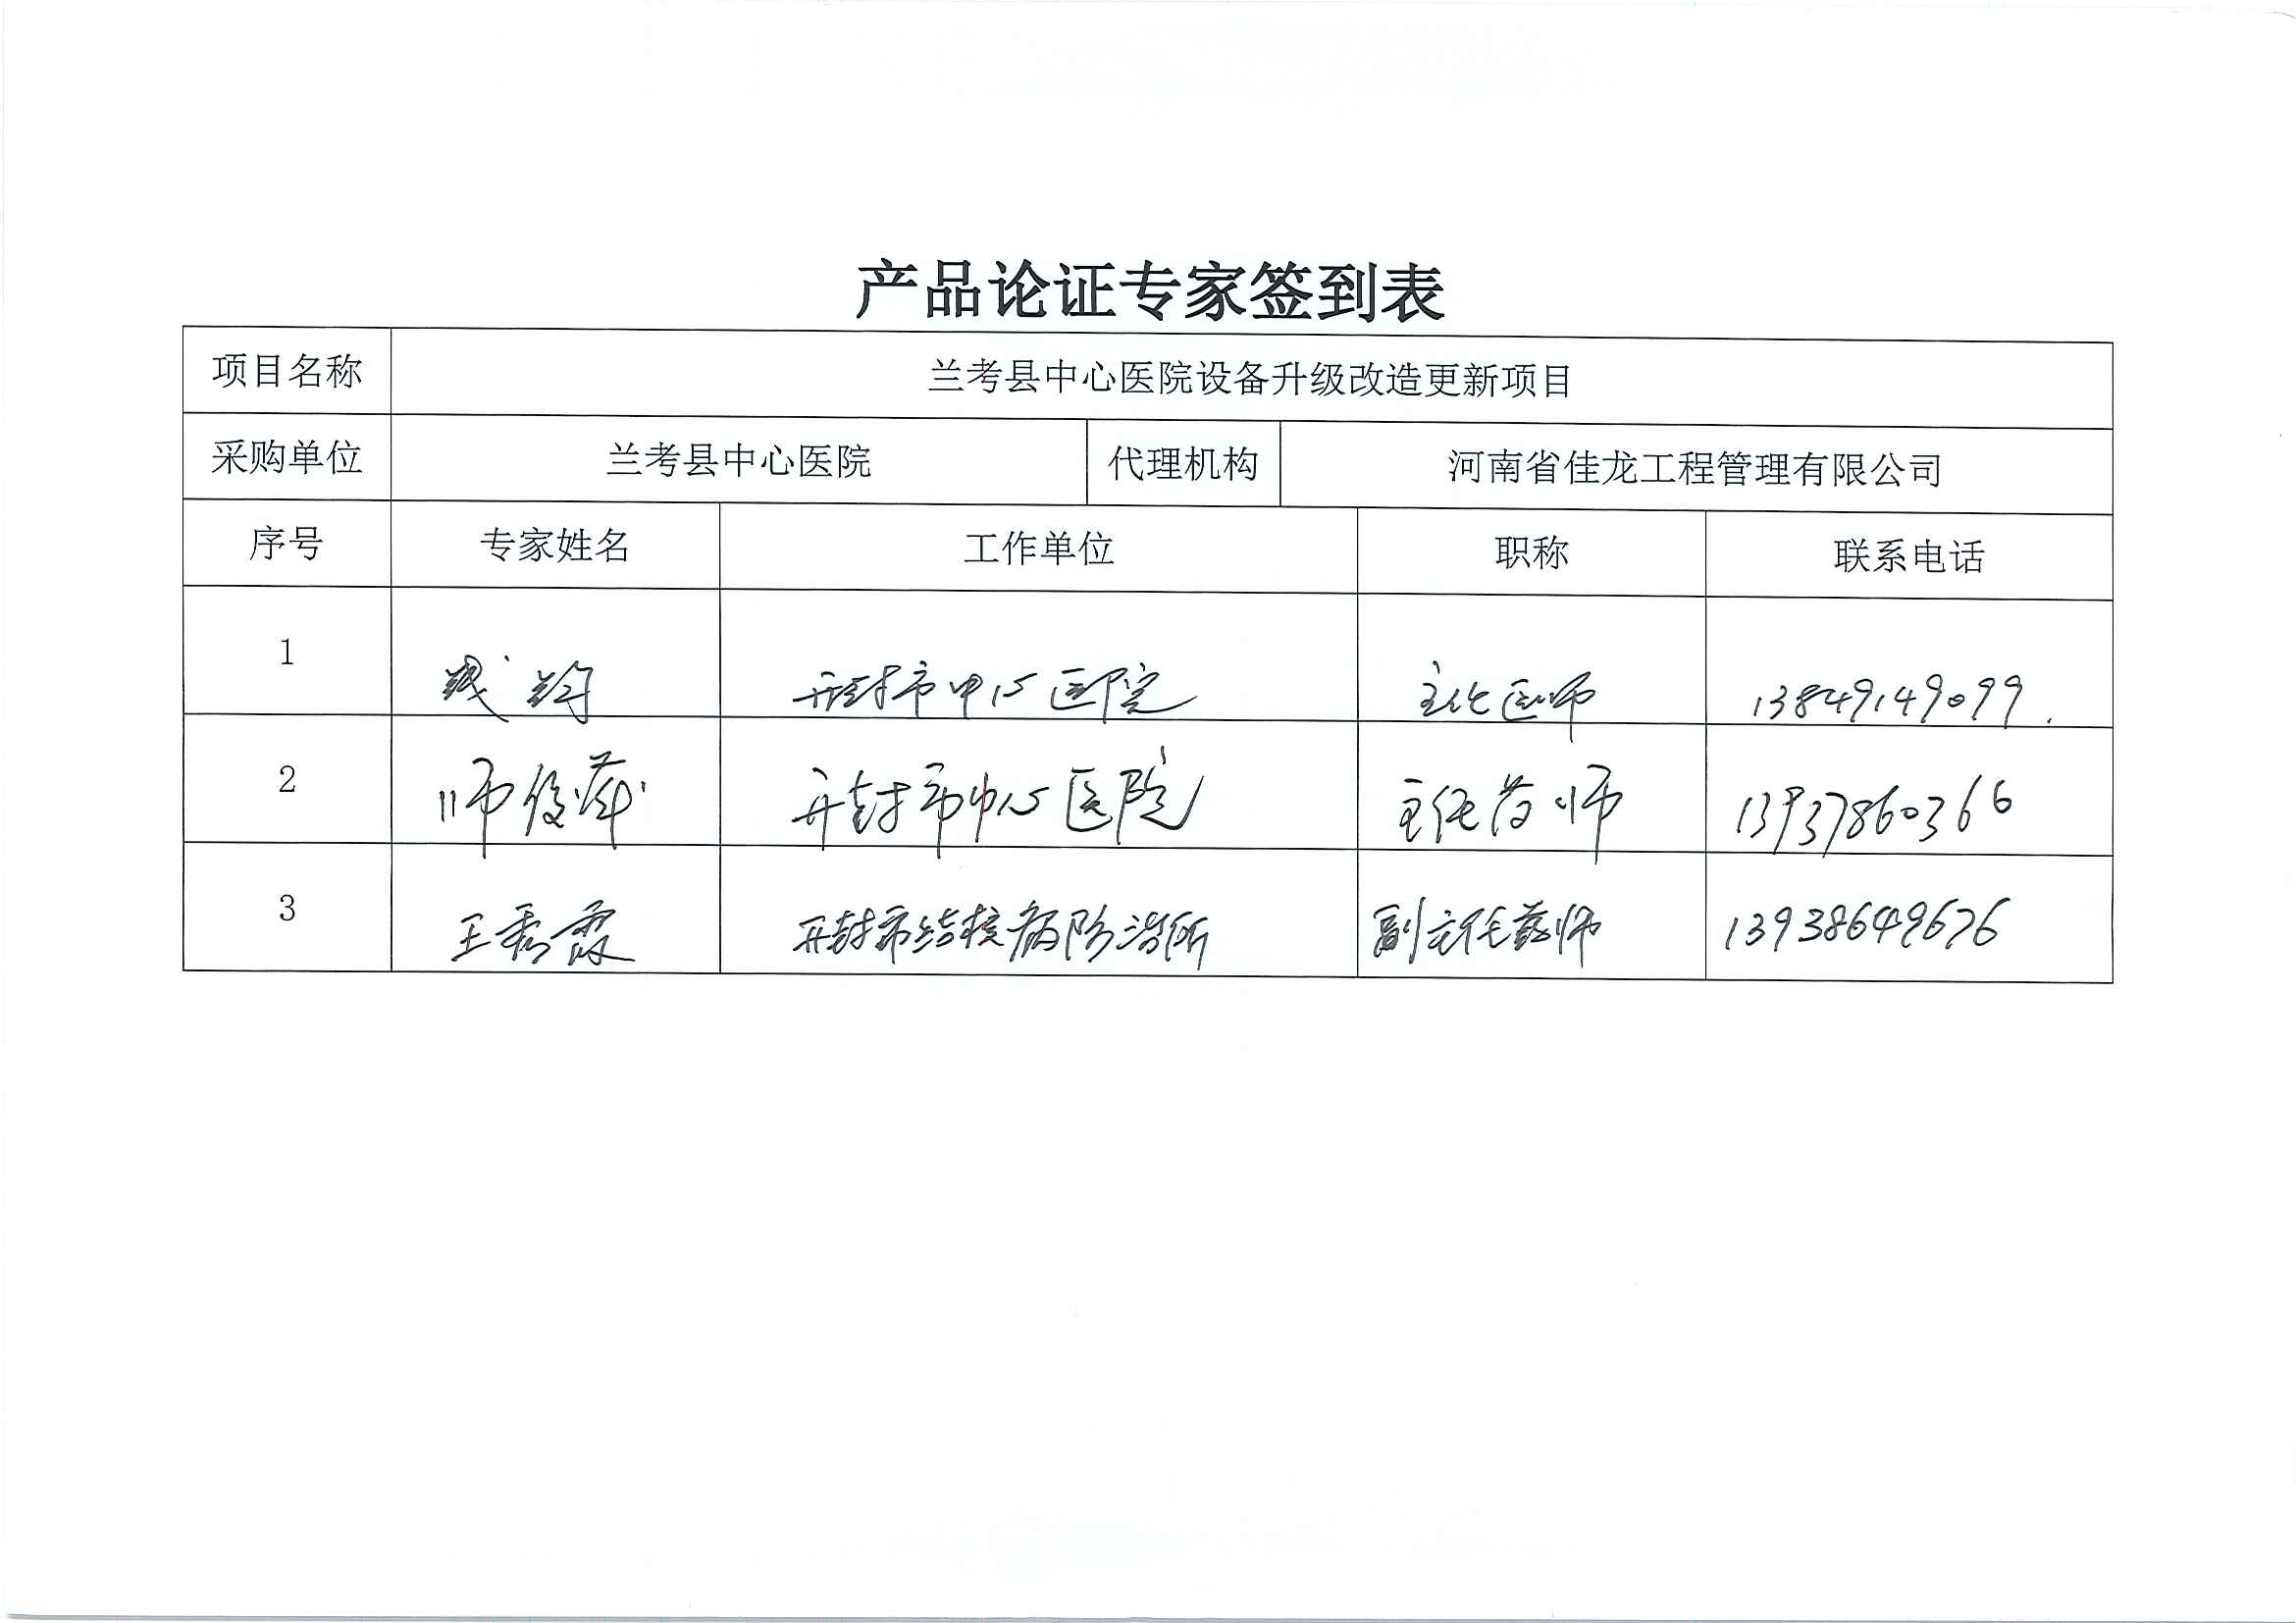 产品论证专家签到表
项目名称 兰考县中心医院设备升级改造更新项目
采购单位 兰考县中心医院 代理机构 河南省佳龙工程管理有限公司
序号 专家姓名 工作单位 职称 联系电话
1 开封市中心医院 主任医师 13849149099.
2 师俊萍 开封市中心医院 主任药师 13937860366
3 王秀霞 开封市结核病防治所 副主任药师 13938649676